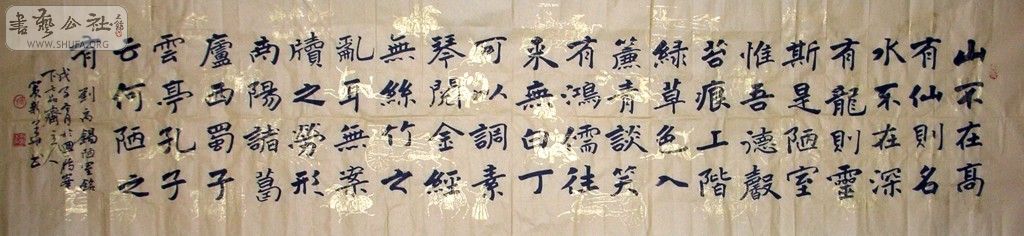 山不在高
有仙則名
水不在深
有龍則靈
斯是陋室
惟吾德馨
苔痕上階
綠草色入
簾青談笑
有鴻儒往
來無白丁
可以調素
琴閱金經
無絲竹之
亂耳無案
牘之勞形
南陽諸葛
廬西蜀子
雲亭孔子
云何陋之
有
劉禹錫陋室銘
書藝公社
WWW.SHUFA.ORG